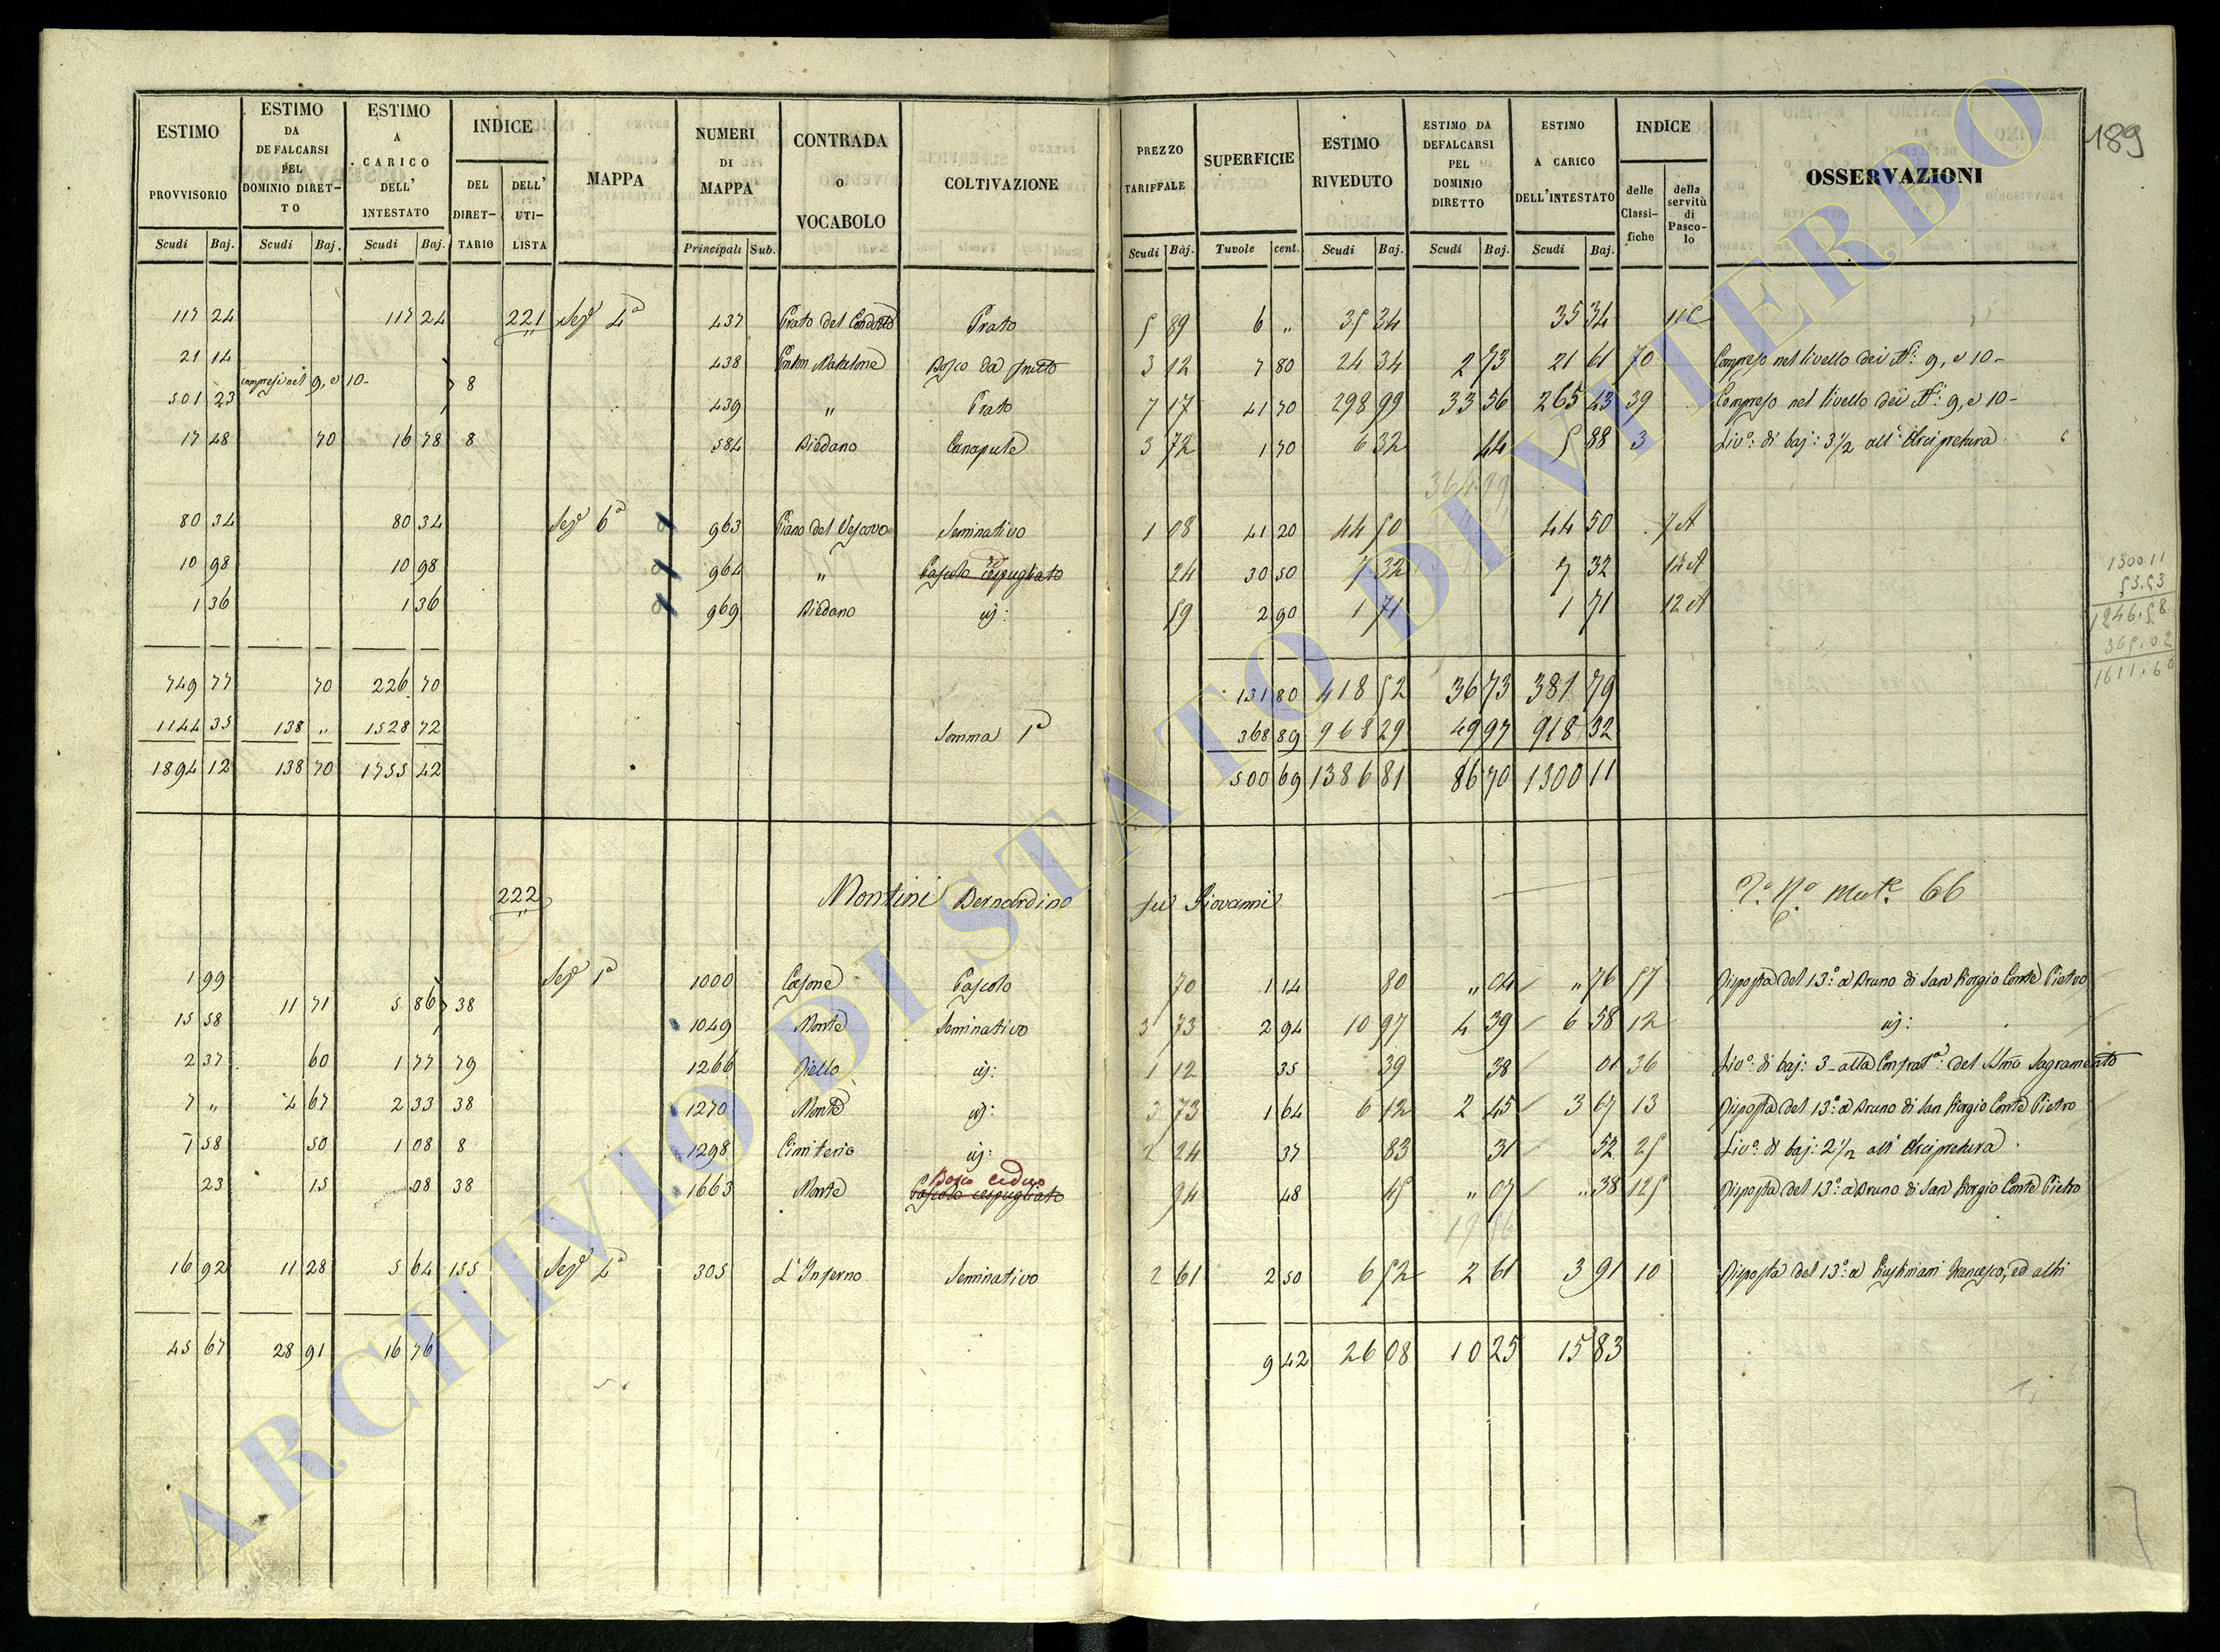 189
ESTIMO PROVVISORIO Scudi Baj.
ESTIMO DA DEFALCARSI PEL DOMINIO DIRET-TO Scudi Baj.
ESTIMO A CARICO DELL' INTESTATO Scudi Baj.
INDICE DEL DIRET-TARIO DELL' UTI-LISTA
MAPPA
NUMERI DI MAPPA Principali Sub.
CONTRADA o VOCABOLO
COLTIVAZIONE
PREZZO TARIFFALE Scudi Baj.
SUPERFICIE Tavole cent.
ESTIMO RIVEDUTO Scudi Baj.
ESTIMO DA DEFALCARSI PEL DOMINIO DIRETTO Scudi Baj.
ESTIMO A CARICO DELL'INTESTATO Scudi Baj.
INDICE delle Classi-fiche della servitù di Pasco-lo
OSSERVAZIONI
117 24 117 24 221 Sezе 4a 437 Prato del Condotto Prato 5 89 6 " 35 34 35 34 11 C
21 14 438 Bosco da frutto 3 12 7 80 24 34 2 73 21 61 70 Compreso nel livello dei Ni: 9, e 10-
compresi nel 9, e 10- 8
501 23 439 " Prato 7 17 41 70 298 99 33 56 265 43 39 Compreso nel livello dei Ni: 9, e 10-
17 48 70 16 78 8 584 Biedano Canapule 3 72 1 70 6 32 44 5 88 3 Livo: di baj: 3 1/2 all'Arcipretura
364.99
80 34 80 34 Seze 6a 963 Piano del Vescovo Seminativo 1 08 41 20 44 50 44 50 7 A
10 98 10 98 964 " Pascolo cespugliato 24 30 50 7 32 7 32 12 A
1 36 1 36 969 Biedano id: 59 2 90 1 71 1 71 12 A
749 77 70 226 70 131 80 418 52 36 73 381 79
1144 35 138 " 1528 72 Somma 1a 368 89 968 29 49 97 918 32
1894 12 138 70 1755 42 500 69 1386 81 86 70 1300 11
1300 11
53.53
1246.58
365.02
1611.60
222 Montini Bernardino fu Giovanni 66
1 99 Seze 1a 1000 Casone Pascolo 70 1 14 80 " 04 " 76 57 Risposta del 13o: a Bruno di San Giorgio Conte Pietro
11 71 5 86 38
15 58 1049 Monte Seminativo 3 73 2 94 10 97 4 39 6 58 12 id:
2 37 60 1 77 79 1266 id: 1 12 35 39 38 01 36 Livo: di baj: 3- alla Confrata: del SSmo Sagramento
7 " 4 67 2 33 38 1270 Monte id: 3 73 1 64 6 12 2 45 3 67 13 Risposta del 13o: a Bruno di San Giorgio Conte Pietro
1 58 50 1 08 8 1298 Cimiterio id: 2 24 37 83 31 52 25 Livo: di baj: 2 1/2 all'Arcipretura
Bosco ceduo
23 15 08 38 1663 Monte Pascolo cespugliato 94 48 45 " 07 " 38 125 Risposta del 13o: a Bruno di San Giorgio Conte Pietro
16 92 11 28 5 64 155 Seze 4a 305 L'Inferno Seminativo 2 61 2 50 6 52 2 61 3 91 10 Risposta del 13o: a Giustiniani Francesco, ed altri
45 67 28 91 16 76 9 42 26 08 10 25 15 83
ARCHIVIO DI STATO DI VITERBO